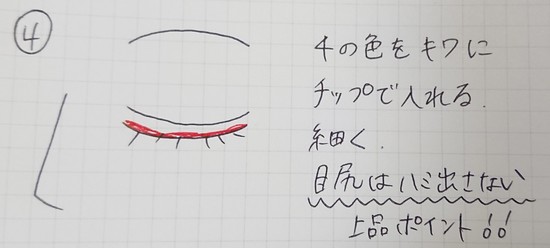 ④
4の色をキワに
チップで入れる.
細く.
目尻はハミ出さない
上品ポイント!!